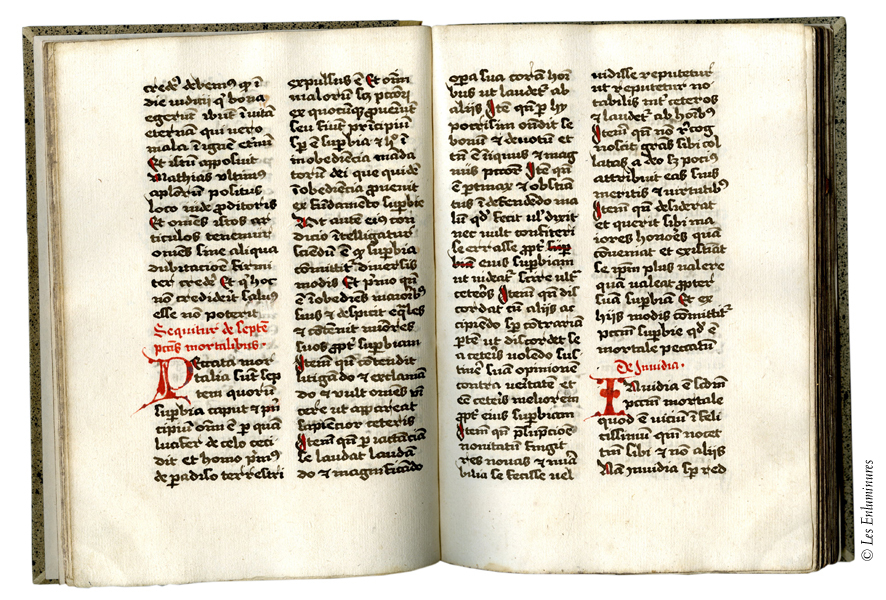 credere debemus quod in
die iudicii qui bona
egerunt ibunt in uitam
eternam qui uero
mala in ignem eternum
Et istum apposuit
Mathias ultimus
apostolorum positus
loco iude proditoris
Et omnes istos ar
ticulos tenemur
omnes sine aliqua
dubitacione firmi
ter credere Et qui hoc
non crediderit saluus
esse non poterit
Sequitur de septem
peccatis mortalibus
Peccata mor
talia sunt sep
tem quorum
superbia caput et prin
cipium omnium est per quam
lucifer de celo ceci
dit et homo primus
de paradiso terrestri
expulsus est Et omnium
malorum seu peccatorum
ex quocumque proueniunt
seu fiunt principium
semper est superbia et licet
inobediencia manda
torum dei que quidem
inobediencia prouenit
ex fundamento superbie
Ut autem eius con
dicio intelligatur
sciendum est quod superbia
comittitur diuersis
modis Et primo quando
est inobediens maioribus
suis et despicit equales
et contenit minores
suos propter superbiam
Item quando contendit
litigando et exclaman
do et uult omnes uin
cere ut appareat
sapiencior ceteris
Item quando per iactanciam
se laudat laudan
do et magnificando
opera sua coram homi
bus ut laudetur ab
aliis Item quando per hy
pocrisim ostendit se
bonum et deuotum et
tamen est iniquus et mag
nus peccator Item quando
est pertinax et obstina
tus in defendendo ma
lum quod fecit uel dixit
nec uult confiteri
se errasse propter super
biam eius superbiam
ut uideatur scire ultra
ceteros Item quando dis
cordat cum aliis ac
cipiendo semper contrariam
partem ut discordet se
a ceteris uolendo sus
tinere suam opinionem
contra ueritatem et
esse ceteris meliorem
propter eius superbiam
Item quando presumpcione
nouitatum fingit
res nouas et mira
bilia se fecisse uel
uidisse reputetur
ut reputetur no
tabilis inter ceteros
et laudetur ab hominibus
Item quando non recog
noscit gratias sibi col
latas a deo sed pocius
attribuit eas suis
meritis et uirtutibus
Item quando desiderat
et querit sibi ma
iores honores quam
conueniat et existimat
se ipsum plus ualere
quam ualeat propter
suam superbiam Et ex
hiis modis comittitur
peccatum superbie quod est
mortale peccatum
De Inuidia
Inuidia est secundum
peccatum mortale
quod est uicium infeli
cissimum quia nocet
tantum sibi et non aliis
Nam inuidia semper red
© Les Enluminures